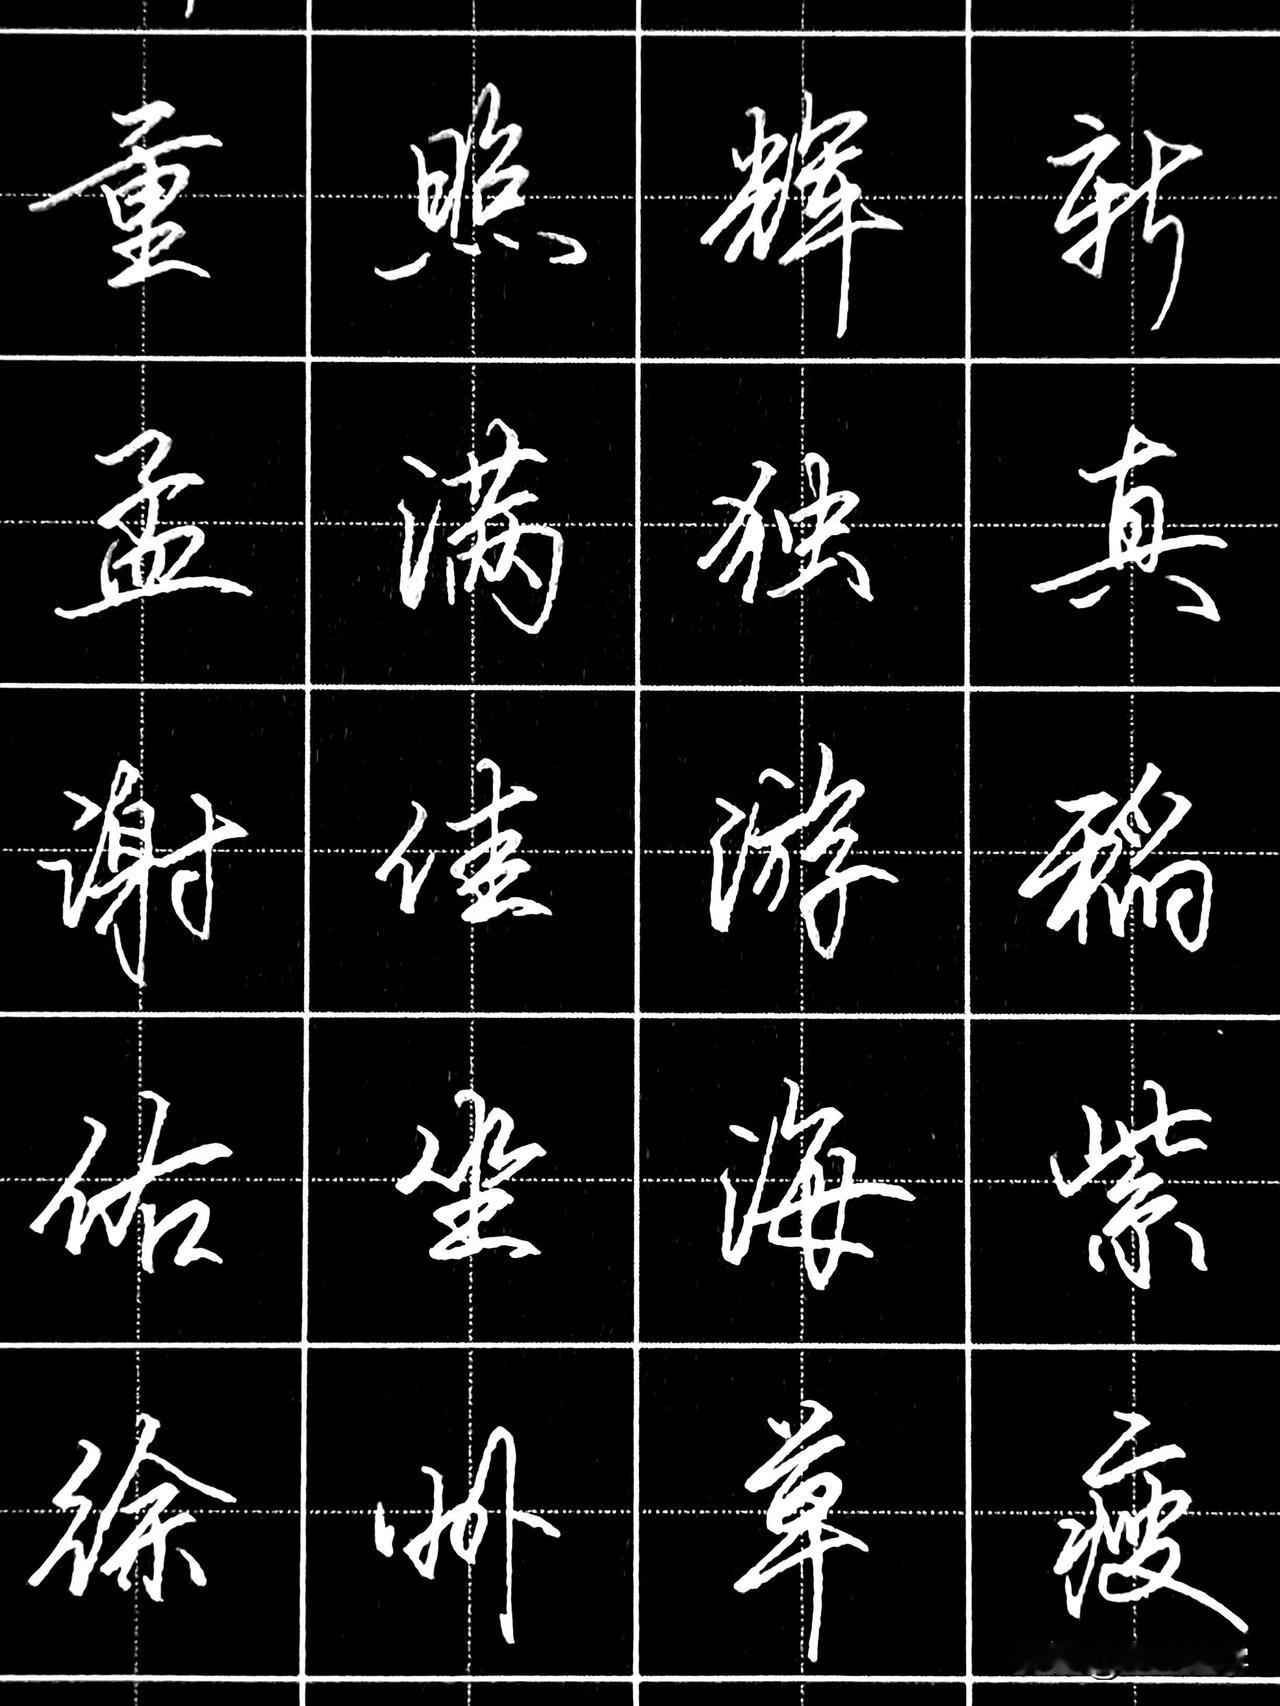 童照辉新
孟满独真
谢佳游稻
佑坐海紫
徐州草瘦